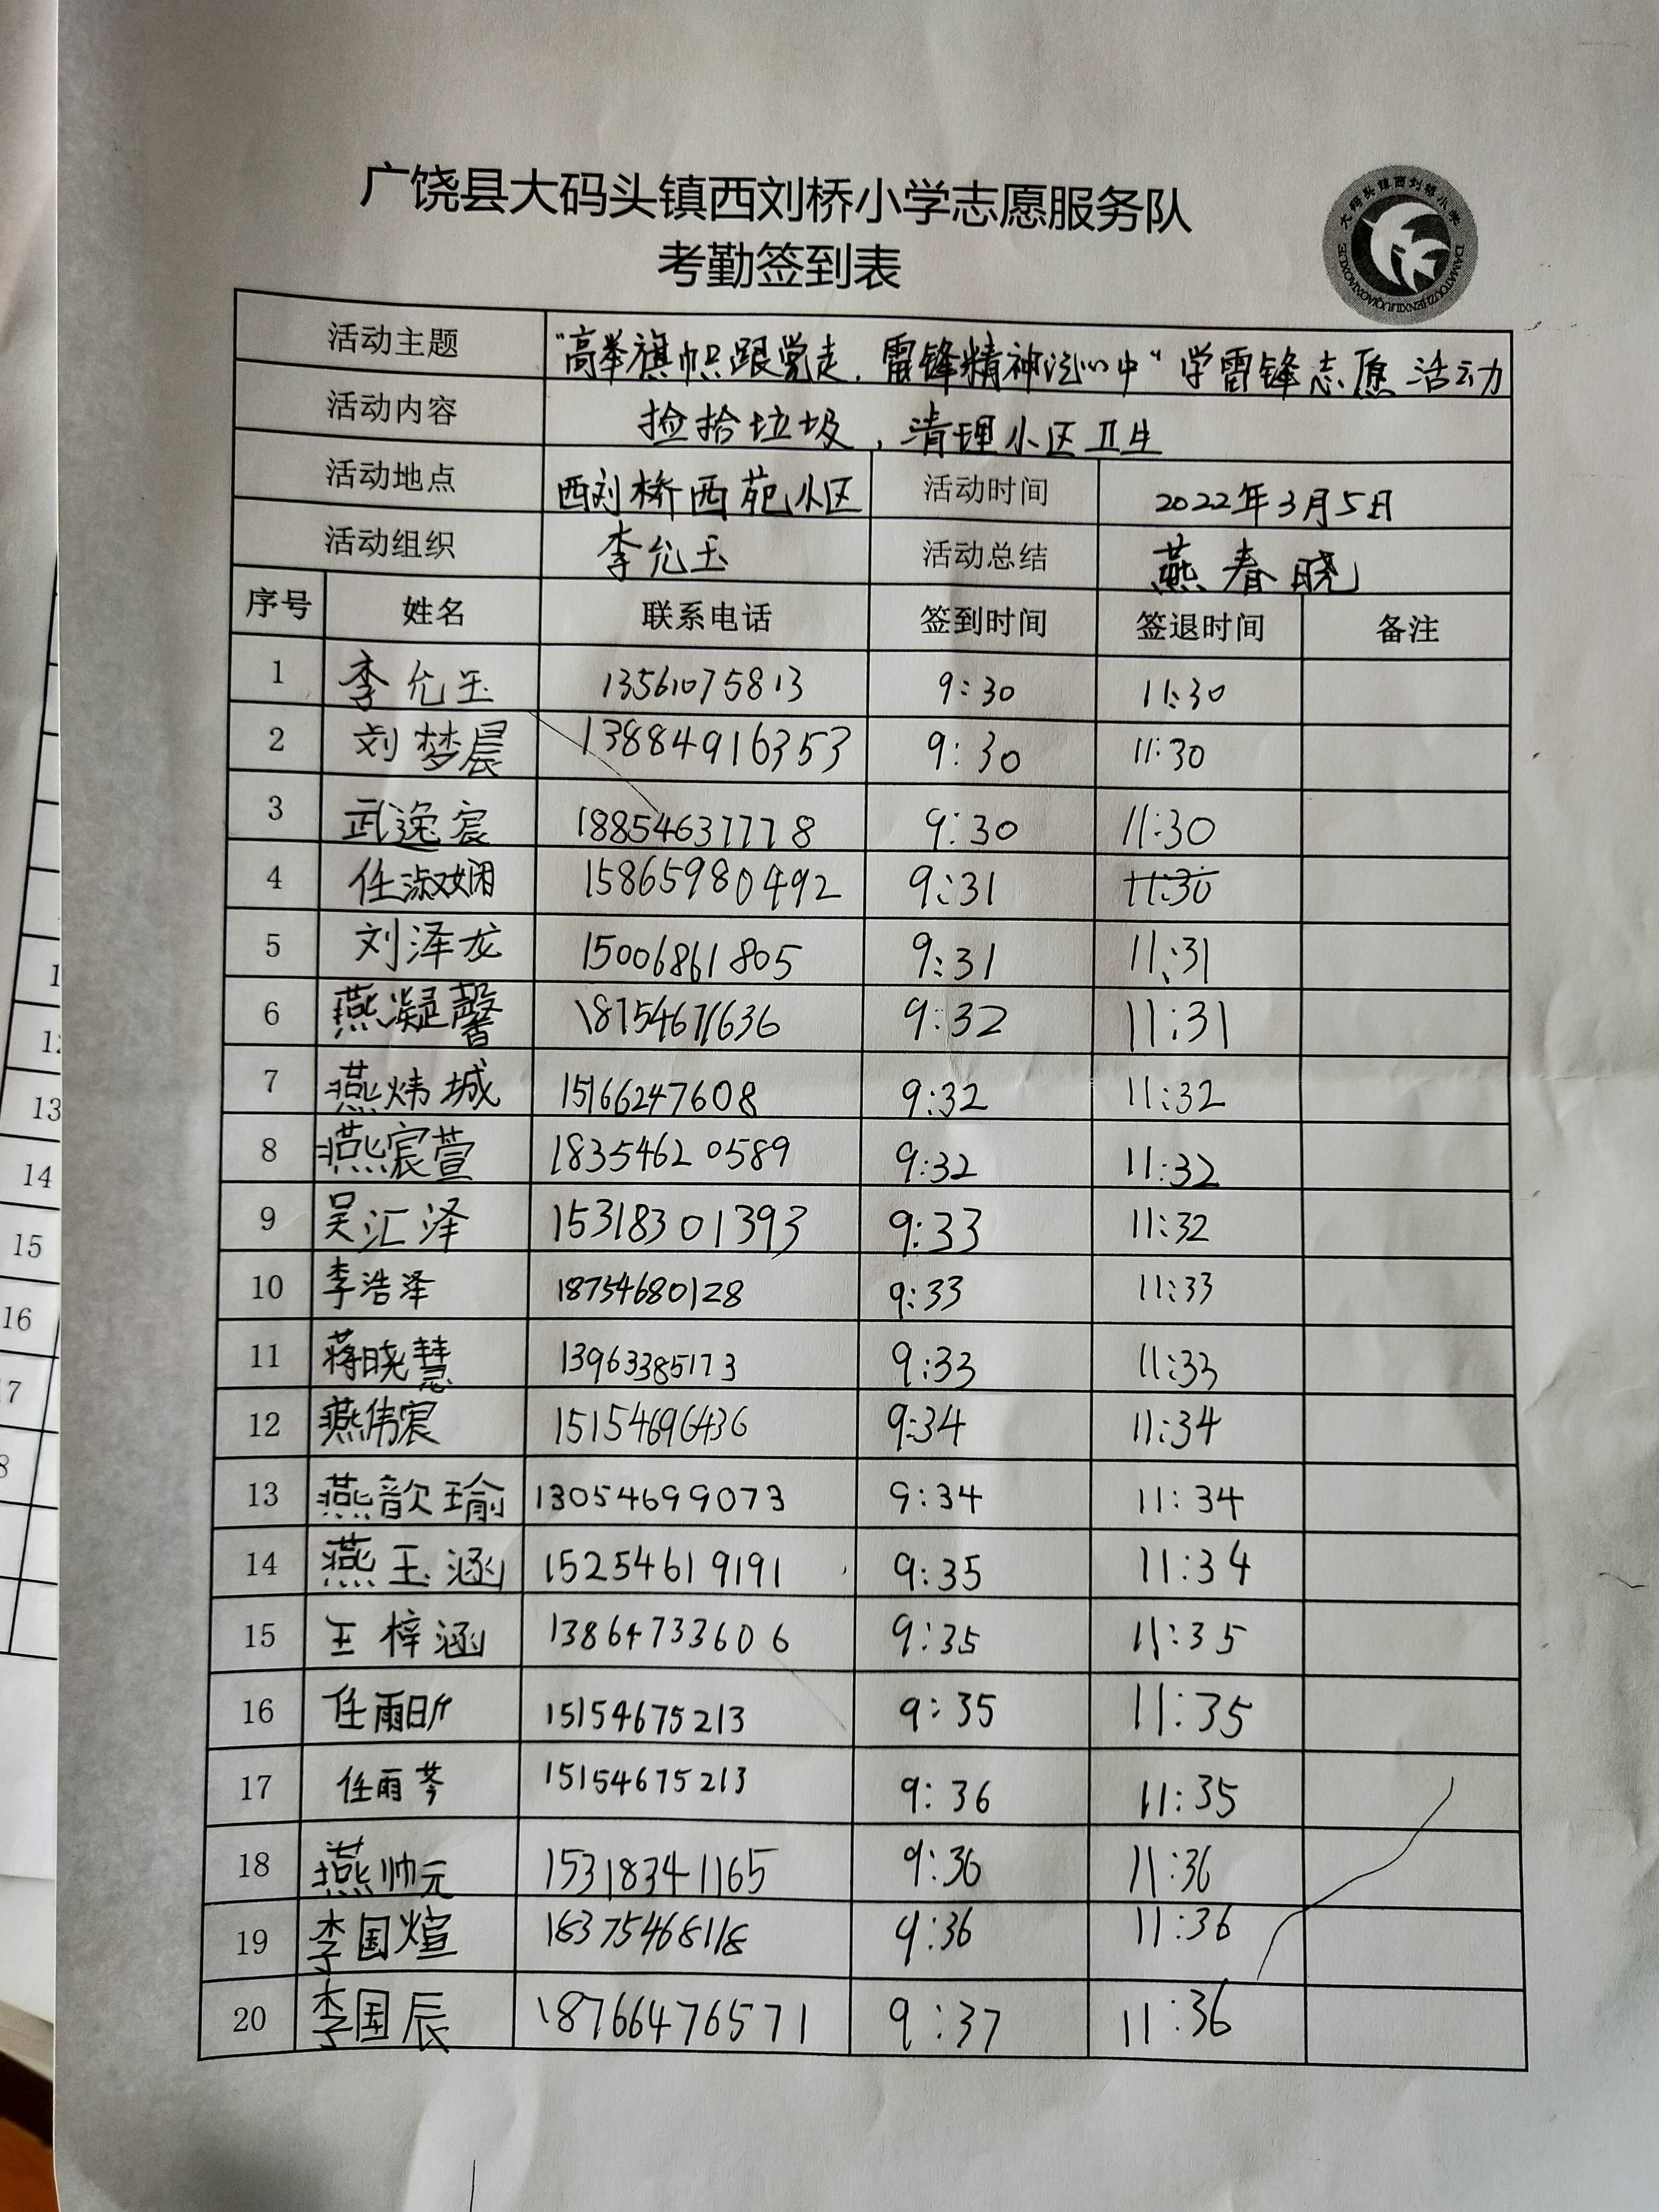 广饶县大码头镇西刘桥小学志愿服务队
考勤签到表
大码头镇西刘桥小学
DAMATOUZHENXILIUQIAOXIAOXUE
活动主题 "高举旗帜跟党走,雷锋精神记心中"学雷锋志愿活动
活动内容 捡拾垃圾,清理小区卫生
活动地点 西刘桥西苑小区 活动时间 2022年3月5日
活动组织 李允玉 活动总结 燕春晓
序号 姓名 联系电话 签到时间 签退时间 备注
1 李允玉 13561075813 9:30 11:30
2 刘梦晨 13884916353 9:30 11:30
3 武逸宸 18854637778 9:30 11:30
4 任淑娴 15865980492 9:31 11:30
5 刘泽龙 15006861805 9:31 11:31
6 燕凝馨 18754671636 9:32 11:31
7 燕炜城 15166247608 9:32 11:32
8 燕宸萱 18354620589 9:32 11:32
9 吴汇泽 15318301393 9:33 11:32
10 李浩泽 18754680128 9:33 11:33
11 蒋晓慧 13963385173 9:33 11:33
12 燕伟宸 15154696436 9:34 11:34
13 燕歆瑜 13054699073 9:34 11:34
14 燕玉涵 15254619191 9:35 11:34
15 王梓涵 13864733606 9:35 11:35
16 任雨昕 15154675213 9:35 11:35
17 任雨芩 15154675213 9:36 11:35
18 燕帅元 15318341165 9:36 11:36
19 李国煊 18375468118 9:36 11:36
20 李国辰 18766476571 9:37 11:36
13
14
15
16